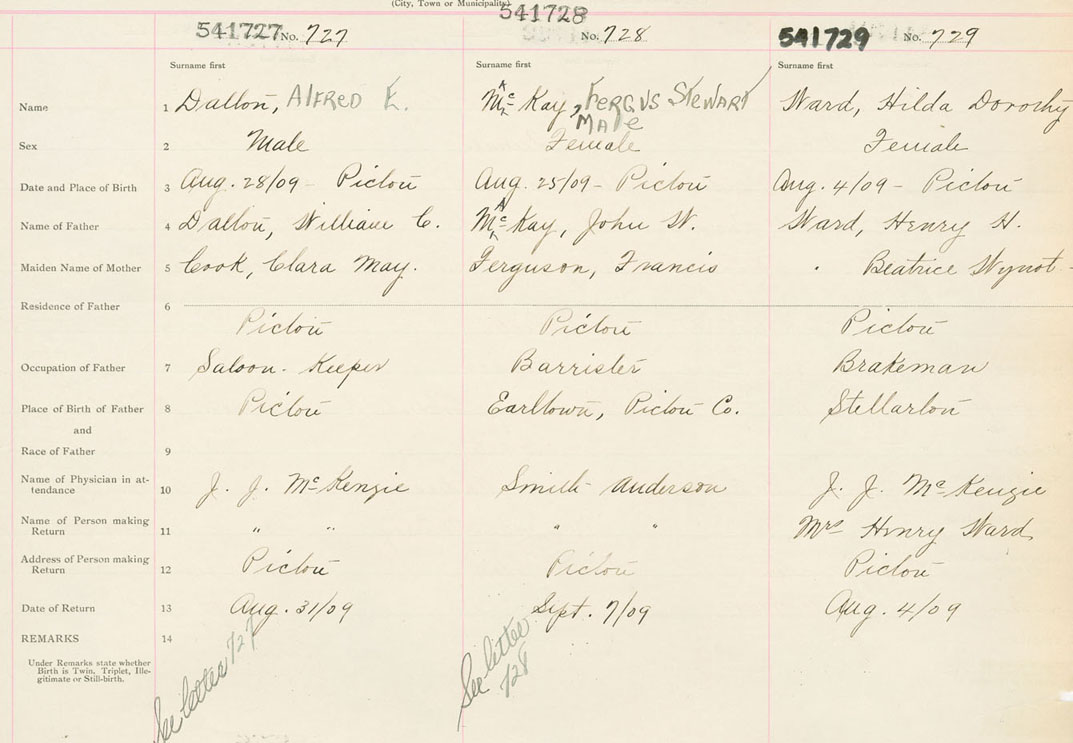 (City, Town or Municipality)
541727 No. 727 541728 No. 728 541729 No. 729
Surname first Surname first Surname first
Name 1 Dalton, ALFRED E. Mc Kay, FERGUS STEWART Ward, Hilda Dorothy
A
MALE
Sex 2 Male Female Female
Date and Place of Birth 3 Aug. 28/09 - Pictou Aug. 25/09 - Pictou Aug. 4/09 - Pictou
A
Name of Father 4 Dalton, William C. Mc Kay, John W. Ward, Henry H.
Maiden Name of Mother 5 Cook, Clara May. Ferguson, Francis Beatrice Wynot -
Residence of Father 6
Pictou Pictou Pictou
Occupation of Father 7 Saloon-Keeper Barrister Brakeman
Place of Birth of Father 8 Pictou Earltown, Pictou Co. Stellarton
and
Race of Father 9
Name of Physician in at-
tendance 10 J. J. McKenzie Smith Anderson J. J. McKenzie
Name of Person making
Return 11 " " " " Mrs Henry Ward
Address of Person making
Return 12 Pictou Pictou Pictou
Date of Return 13 Aug. 31/09 Sept. 7/09 Aug. 4/09
REMARKS 14
Under Remarks state whether
Birth is Twin, Triplet, Ille-
gitimate or Still-birth.
See letter 727
See letter
728